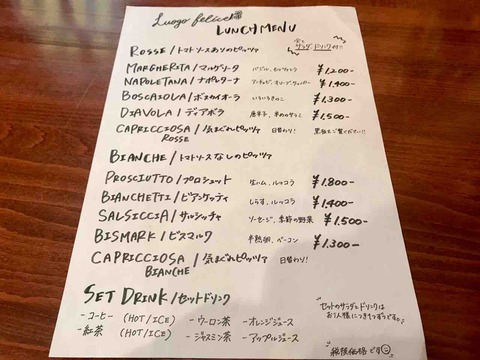 Luogo felice
LUNCH MENU
全て サラダ、ドリンク付!!
ROSSE / トマトソースありのピッツァ
MARGHERITA / マルゲリータ バジル、モッツァレラ ¥1.200-
NAPOLETANA / ナポレターナ アンチョビ、オリーブ、ケッパー ¥1.400-
BOSCAIOLA / ボスカイオーラ いろいろきのこ ¥1.300-
DIAVOLA / ディアボラ 唐辛子、辛めのサラミ ¥1.500-
CAPRICCIOSA ROSSE / 気まぐれピッツァ 日替わり! 黒板をご覧ください!!
BIANCHE / トマトソースなしのピッツァ
PROSCIUTTO / プロシュット 生ハム、ルッコラ ¥1.800-
BIANCHETTI / ビアンケッティ しらす、ルッコラ ¥1.400-
SALSICCIA / サルシッチャ ソーセージ、季節の野菜 ¥1.500-
BISMARK / ビスマルク 半熟卵、ベーコン ¥1.300-
CAPRICCIOSA BIANCHE / 気まぐれピッツァ 日替わり!
SET DRINK / セットドリンク
- コーヒー (HOT/ICE) - ウーロン茶 - オレンジジュース
- 紅茶 (HOT/ICE) - ジャスミン茶 - アップルジュース
セットのサラダ&ドリンクは
お1人様につき1つずつです。
税抜価格です